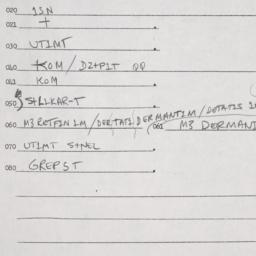 020 1SN
021 +
030 UTIMT
040 KOM / DZ+PIT QQ
041 KOM
050 S+LLKAR-T
060 M3 RETFIN IM / DER TATI / DERMANTIM / DETATIS
061 M3 DERMAN
070 UTIMT S+NEL
080 GREPST